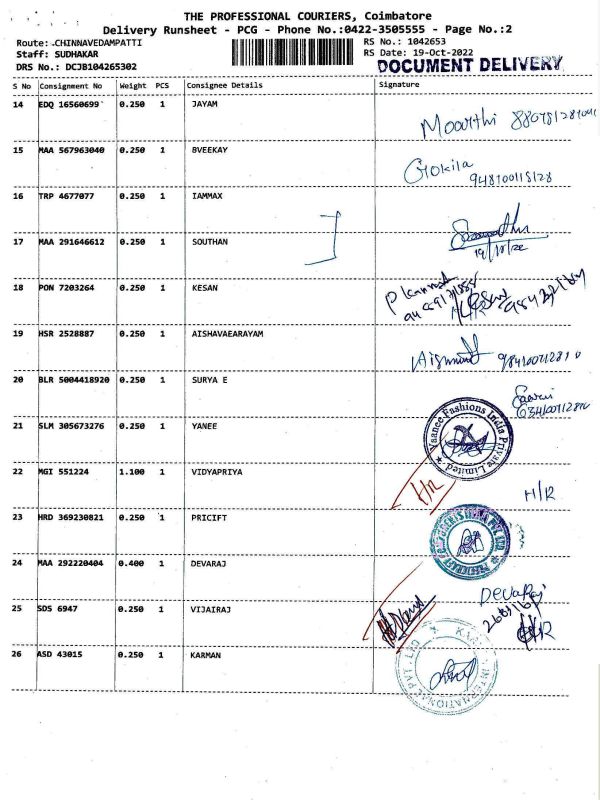 THE PROFESSIONAL COURIERS, Coimbatore
Delivery Runsheet - PCG - Phone No.:0422-3505555 - Page No.:2
Route: CHINNAVEDAMPATTI
RS No.: 1042653
Staff: SUDHAKAR
RS Date: 19-Oct-2022
DRS No.: DCJB104265302
DOCUMENT DELIVERY
S No Consignment No Weight PCS Consignee Details Signature
14 EDQ 16560699 0.250 1 JAYAM
Moorthi
15 MAA 567963040 0.250 1 BVEEKAY
Gokila
948100118128
16 TRP 4677077 0.250 1 IAMMAX
17 MAA 291646612 0.250 1 SOUTHAN
19/10/22
18 PON 7203264 0.250 1 KESAN
19 HSR 2528887 0.250 1 AISHAVAEARAYAM
20 BLR 5004418920 0.250 1 SURYA E
21 SLM 305673276 0.250 1 YANEE
Yaanee Fashions India Private Limited
H/R
22 MGI 551224 1.100 1 VIDYAPRIYA
H/R
23 HRD 369230821 0.250 1 PRICIFT
24 MAA 292220404 0.400 1 DEVARAJ
Devaraj
25 SDS 6947 0.250 1 VIJAIRAJ
H/R
26 ASD 43015 0.250 1 KARMAN
INTERNATIONAL PVT. LTD